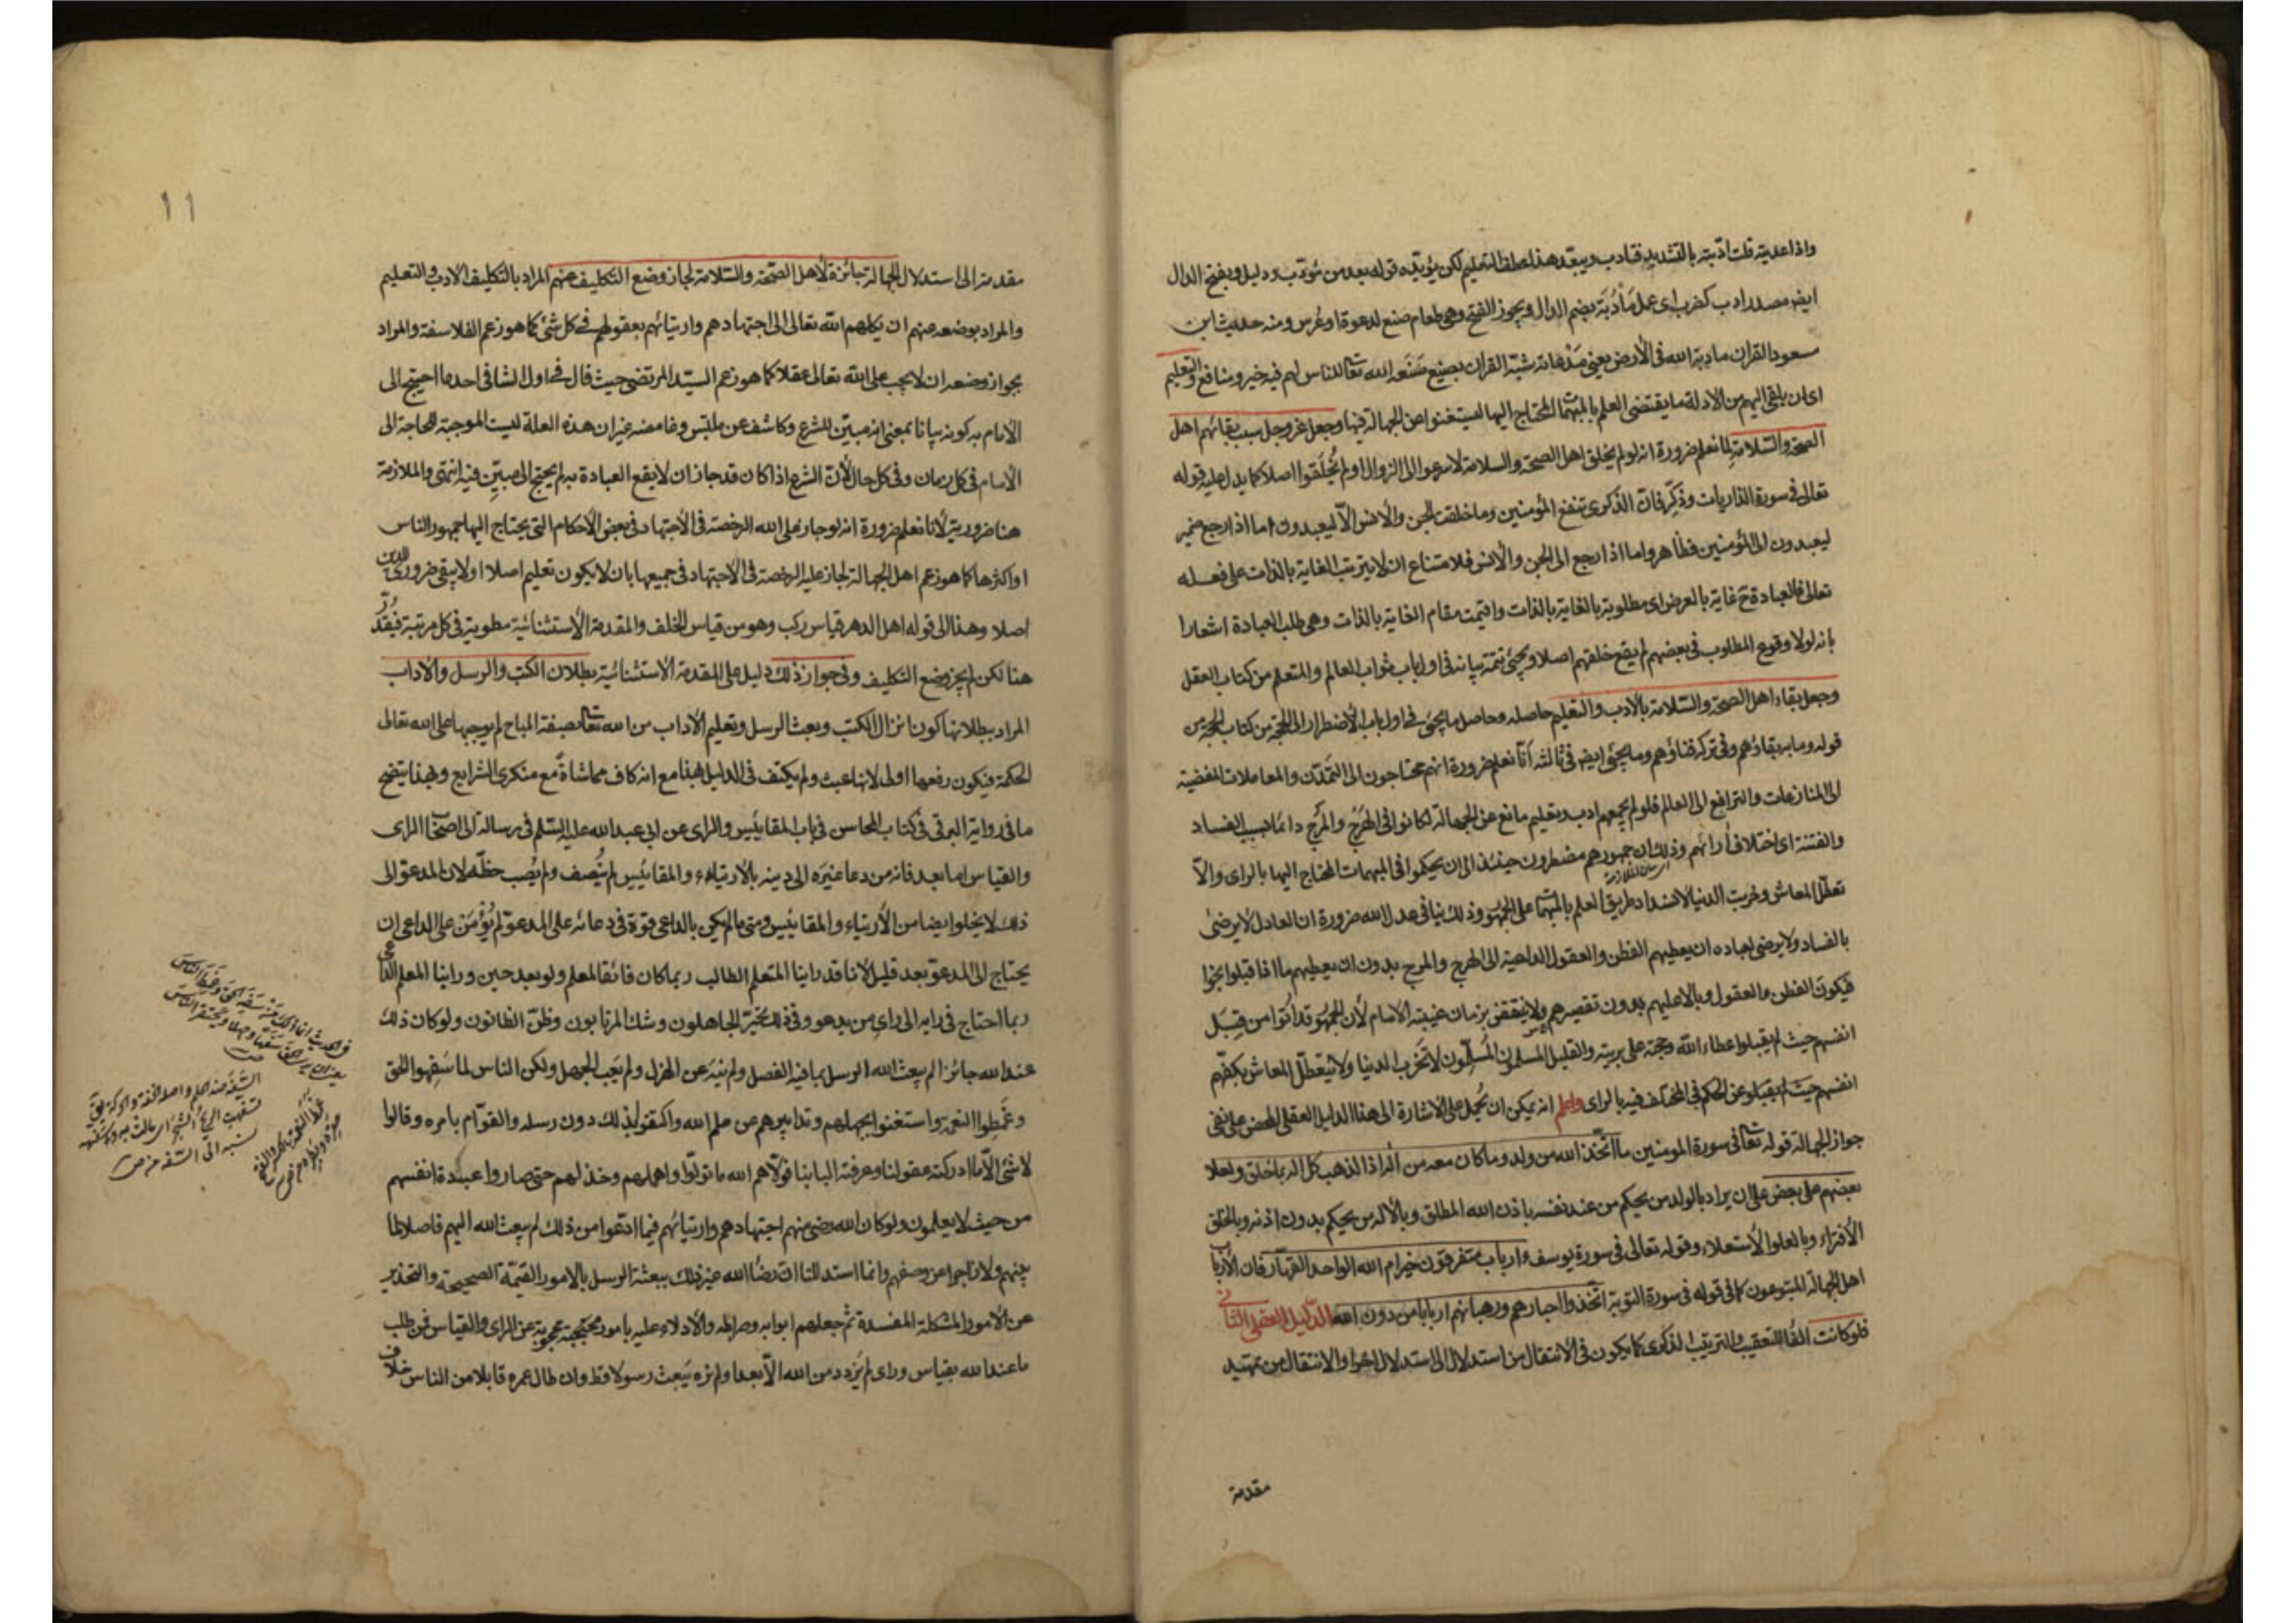 واذا عديته قلت ادّبته بالتشديد فتادب ويبعّد هذا عطف التعليم لكن يؤيّده قوله بعد من مؤدب ودليل وبفتح الدال
ايضا مصدر ادب كضرب اى عمل مَأْدُبَة بضم الدال ويجوز الفتح وهى طعام صنع لدعوة او عُرس ومنه حديث ابن
مسعود القران مادبة الله فى الأرض يعنى مَدْعاته شبّه القران بصنيع صَنَعه الله تعالى للناس لهم فيه خير ومنافع والتعليم
اى ان يلقى اليهم من الادلة ما يقتضى العلم بالمبهمات المحتاج اليها ليستغنوا عن الجهالة فيها وجعل عز وجل سبب بقائهم اهل
الصحة والسّلامة لما نعلم ضرورة انه لو لم يخلق اهل الصحة والسلامة لادعوا الى الزوال او لم يُخلَقوا اصلا كما يدل عليه قوله
تعالى فى سورة الذاريات وذكّر فانّ الذكرى تنفع المؤمنين وما خلقت الجن والانس الّا ليعبدون اما اذا رجع ضمير
ليعبدون الى المؤمنين فظاهر واما اذا رجع الى الجن والأنس فلامتناع ان لا يترتب الغاية بالذات على فعله
تعالى فالعبادة ح غاية بالعرض اى مطلوبة بالغاية بالذات واقيمت مقام الغاية بالذات وهى طلب العبادة اشعارا
بانه لولا وقوع المطلوب فى بعضهم لم يقع خلقهم اصلا ويجئ تتمة بيانه فى اول باب ثواب العالم والمتعلم من كتاب العقل
وجعل بقاء اهل الصحة والسّلامة بالادب والتعليم حاصله وحاصل ما يجئ فى اول باب الأضطرار الى الحجة من كتاب الحجة من
قوله وما به بقاؤهم وفى تركه فناؤهم وما يجئى ايضا فى ثالثه أنّا نعلم ضرورة انهم محتاجون الى التمدّن والمعاملات المفضية
الى المنازعات والترافع الى العالم فلو لم يجمعهم ادب وتعليم مانع عن الجهالة لكانوا فى الهَرْج والمَرْج دائما بسبب الفساد
والفتنة اى اختلاف أرائهم وذلك ان جمهورهم مضطرون حينئذ الى ان يحكموا فى المبهمات المحتاج اليها بالراى والّا
تعطّل المعاش وخربت الدنيا لانسداد طريق العلم بالمبهمات على الجمهور وذلك ينافى عدل الله ضرورة ان العادل لا يرضى
بالفساد ولا يرضى لعباده ان يعطيهم الفطن والعقول الداعية الى الهرج والمرج بدون ان يعطيهم ما اذا قبلوا نجوا
فيكون الفطن والعقول وبالا عليهم بدون تقصيرهم ولا ينتقض بزمان غيبة الامام لأن الجمهور قد أتوا من قِبَل
انفسهم حيث لم يقبلوا عطاء الله وحجته على بريته والقليل المسلمون المُسلّمون لا تخرب الدنيا ولا يتعطّل المعاش بكفّهم
انفسهم حيث لم يقبلوا عن الحكم فى المختلف فيه بالراى واعلم انه يمكن ان تُحمل على الاشارة الى هذا الدليل العقلى المحض على نفى
جواز الجهالة قوله تعالى فى سورة المومنين ما اتّخذ الله من ولد وما كان معه من أله اذا لذهب كل اله بما خلق ولعلا
بعضهم على بعض على ان يراد بالولد من يحكم من عند نفسه باذن الله المطلق وبالأله من يحكم بدون اذنه وبالخلق
الأفتراء وبالعلوا الأستعلاء وقوله تعالى فى سورة يوسف ءارباب متفرقون خير ام الله الواحد القهّار فان الأرباب
اهل الجهالة المتبوعون كما فى قوله فى سورة التوبة اتّخذوا احبارهم ورهبانهم اربابا من دون الله الدّليل العقلى الثانى
فلو كانت الفا للتعقيب والترتيب الذكرى كما يكون فى الأنتقال من استدلال الى استدلال اخر او الانتقال من تمهيد
مقدمة
11
مقدمة الى استدلال الجهالة جائزة لأهل الصّحّة والسّلامة لجاز وضع التكليف عنهم المراد بالتكليف الادب والتعليم
والمراد بوضعه عنهم ان يكلهم الله تعالى الى اجتهادهم وارتيائهم بعقولهم فى كل شئ كما هو زعم الفلاسفة والمراد
بجواز وضعه ان لا يجب على الله تعالى عقلا كما هو زعم السيّد المرتضى حيث قال فى اول الشافى احد ما احتيج الى
الأمام به كونه بيانا بمعنى انه مبيّن للشرع وكاشف عن ملتبس وغامضه غير ان هذه العلة ليست الموجبة للحاجة الى
الأمام فى كل زمان وفى كل حال لأنّ الشرع اذا كان قد جاز ان لا يقع العبادة به لم يحتج الى مبيّن فيه انتهى والملازمة
هنا ضرورية لأنا نعلم ضرورة انه لو جاز على الله الرخصة فى الأجتهاد فى بعض الأحكام التى يحتاج اليها جمهور الناس
او اكثرها كما هو زعم اهل الجهالة لجاز عليه الرخصة فى الاجتهاد فى جميعها بان لا يكون تعليم اصلا او لا يبقى ضرورى الدين
اصلا وهذا الى قوله اهل الدهر قياس مركب وهو من قياس الخلف والمقدمة الأستثنائية مطوية فى كل مرتبة فيقدّر
هنا لكن لم يجز وضع التكليف وفى جواز ذلك دليل على المقدمة الأستثنائية بطلان الكتب والرسل والاداب
المراد ببطلانها كون انزال الكتب وبعث الرسل وتعليم الأداب من الله تعالى بصفة المباح لم يوجبها على الله تعالى
الحكمة فيكون رفعها اولى لانها عبث ولم يكتف فى الدليل بهذا مع انه كاف مماشاةً مع منكرى الشرايع وبهذا يتضح
ما فى رواية البرقى فى كتاب المحاسن فى باب المقائيس والراى عن ابى عبد الله عليه السّلم فى رسالة الى اصحاب الراى
والقياس اما بعد فانه من دعا غيره الى دينه بالارتياء والمقائيس لم يُنصف ولم يُصب حظّه لان المدعوّ الى
ذلك لا يخلوا ايضا من الأرتياء والمقائيس ومتى ما لم يكن بالداعى قوّة فى دعائه على المدعوّ لم يُؤْمَن على الداعى ان
يحتاج الى المدعوّ بعد قليل لأنا قد راينا المتعلم الطالب ربما كان فائقا لمعلم ولو بعد حين وراينا المعلم الداعى
ربما احتاج فى رايه الى راى من يدعو وفى ذلك تحيّر الجاهلون وشك المرتابون وظنّ الظانون ولو كان ذلك
عند الله جائزا لم يبعث الله الرسل بما فيه الفصل ولم ينه عن الهزل ولم يَعِب الجهل ولكن الناس لما سَفِهوا الحق
وغَمَطوا النعمة واستغنوا بجهلهم وتدابيرهم عن علم الله واكتفوا بذلك دون رسله والقوّام بامره وقالوا
لا شئ الّا ما ادركته عقولنا وعرفته البابنا فولّاهم الله ما تولّوا واهملهم وخذلهم حتى صاروا عبدة انفسهم
من حيث لا يعلمون ولو كان الله رضى منهم اجتهادهم وارتيائهم فيما ادّعوا من ذلك لم يبعث الله اليهم فاصلا لما
بينهم ولا زاجرا عن وصفهم وانما استدللنا ان رضا الله غير ذلك ببعثه الرسل بالامور القيّمة الصحيحة والتحذير
عن الأمور المشكلة المفسدة ثم جعلهم ابوابه وصراطه والأدلاء عليه بامور محجوبة عن الراى والقياس فمن طلب
ما عند الله بقياس وراى لم يَزدد من الله الّا بعدا ولم نره يَبعث رسولا قط وان طال عمره قابلا من الناس خلاف